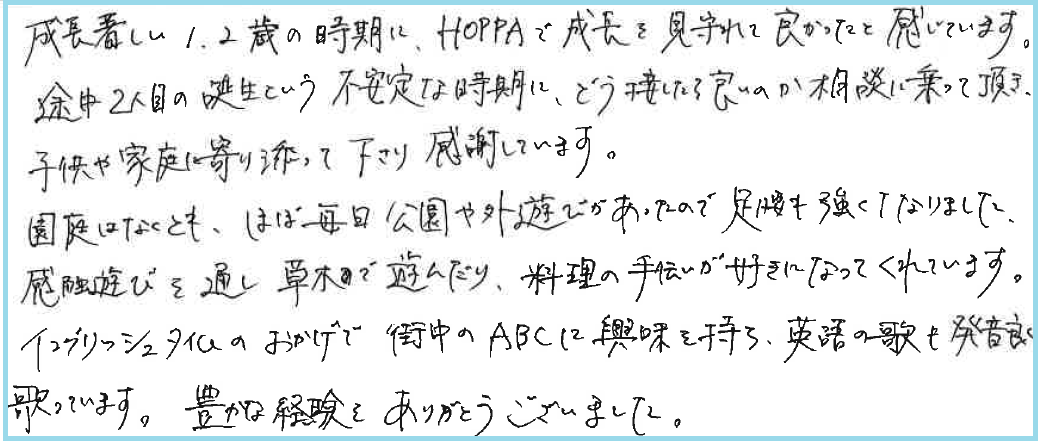 成長著しい1.2歳の時期に、HOPPAで成長を見守れて良かったと感じています。
途中2人目の誕生という不安定な時期に、どう接したら良いのか相談に乗って頂き、
子供や家庭に寄り添って下さり感謝しています。
園庭はなくとも、ほぼ毎日公園や外遊びがあったので足腰も強くなりました。
感触遊びを通し草木で遊んだり、料理の手伝いが好きになってくれています。
イングリッシュタイムのおかげで街中のABCに興味を持ち、英語の歌も発音良く
歌っています。豊かな経験をありがとうございました。